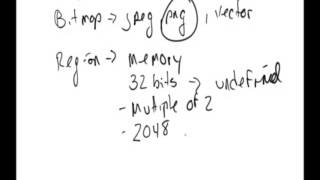 Bitmap -> jpeg png, vector
Region -> memory
32 bits -> undefined
- Multiple of 2
- 2048